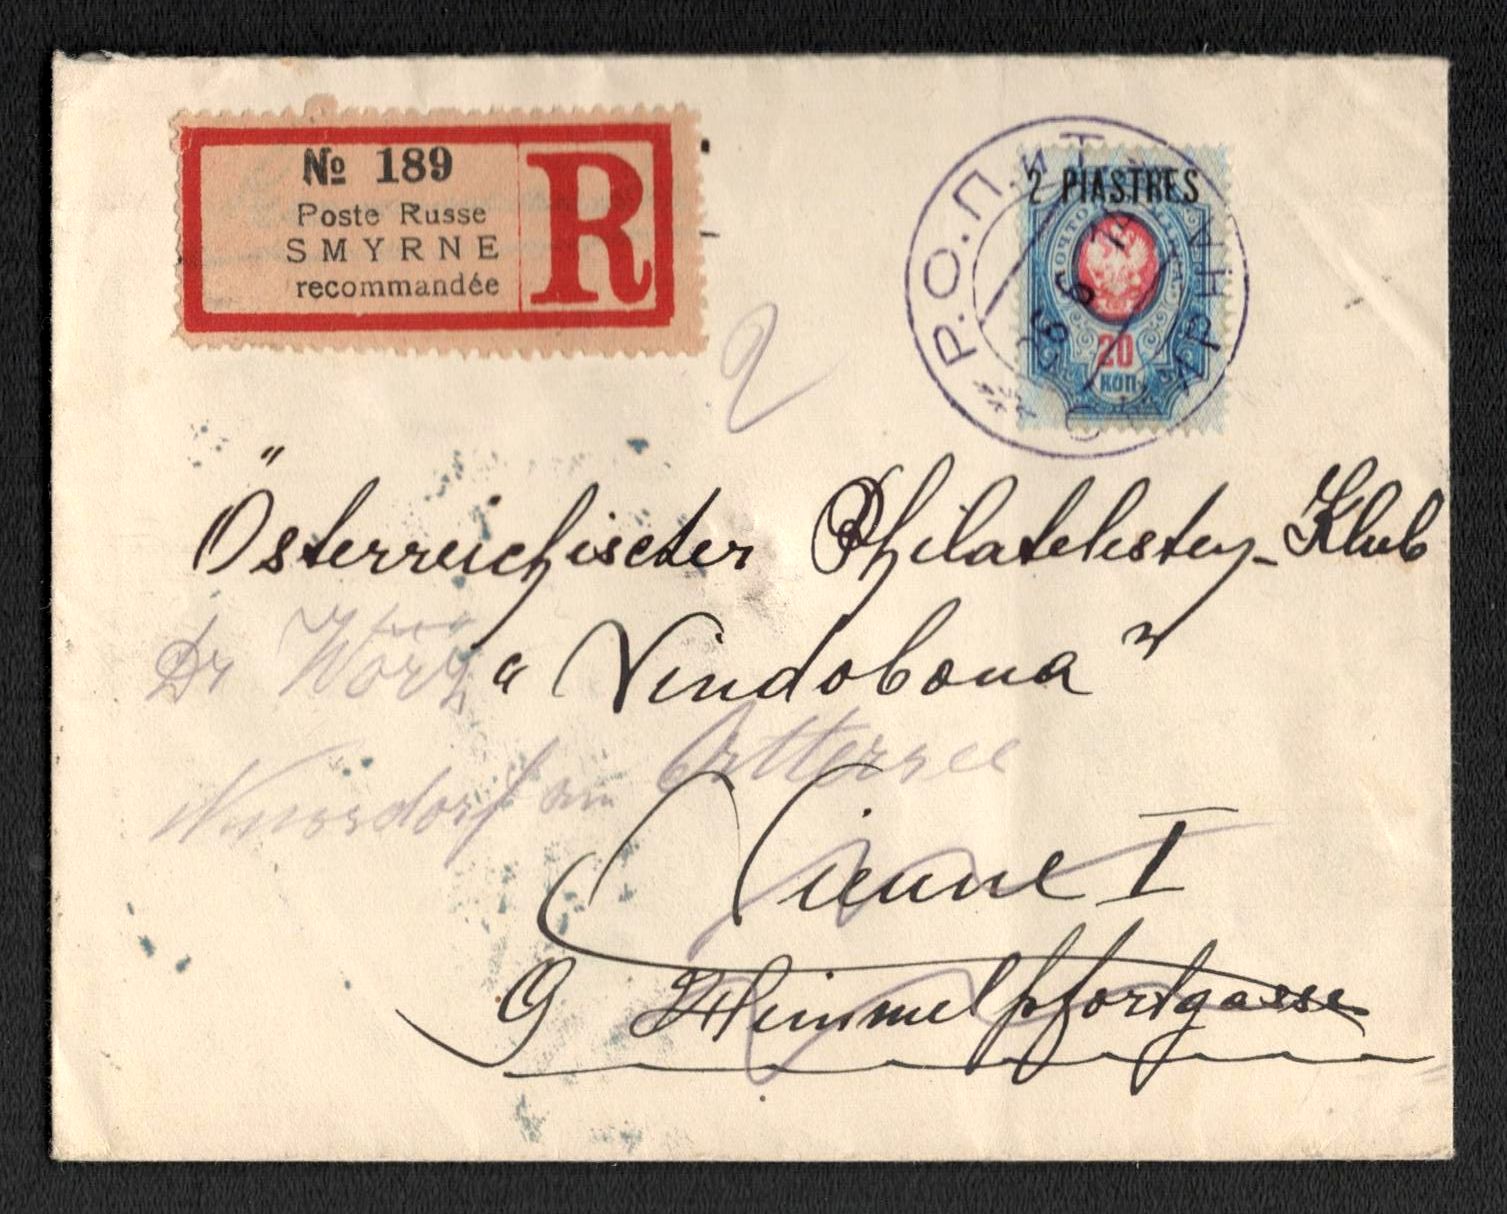 № 189
Poste Russe
SMYRNE
recommandée
R
Р.О.П.и Т.
СМИРНА
2 PIASTRES
20
КОП.
2
Österreichischer Philatelisten-Klub
Dr Wörz
"Vindobona"
Nussdorf am Attersee
Vienne I
9 Himmelpfortgasse